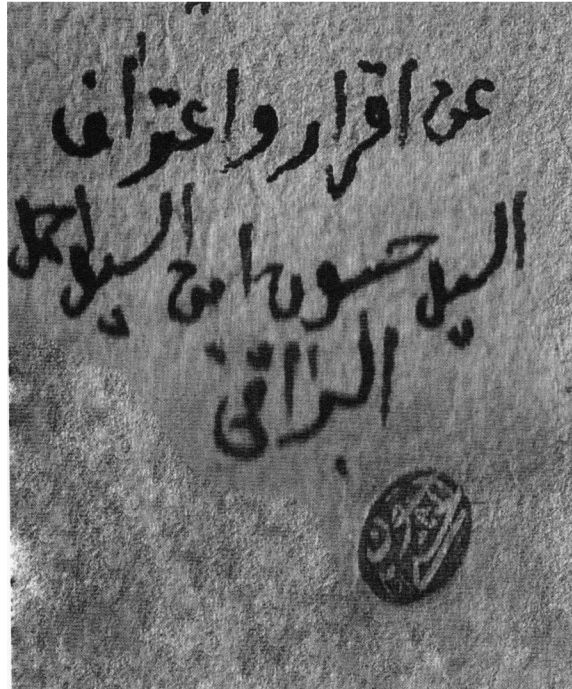 عن اقرار واعتراف
السيد حسون ابن السيد احمد
البراقي